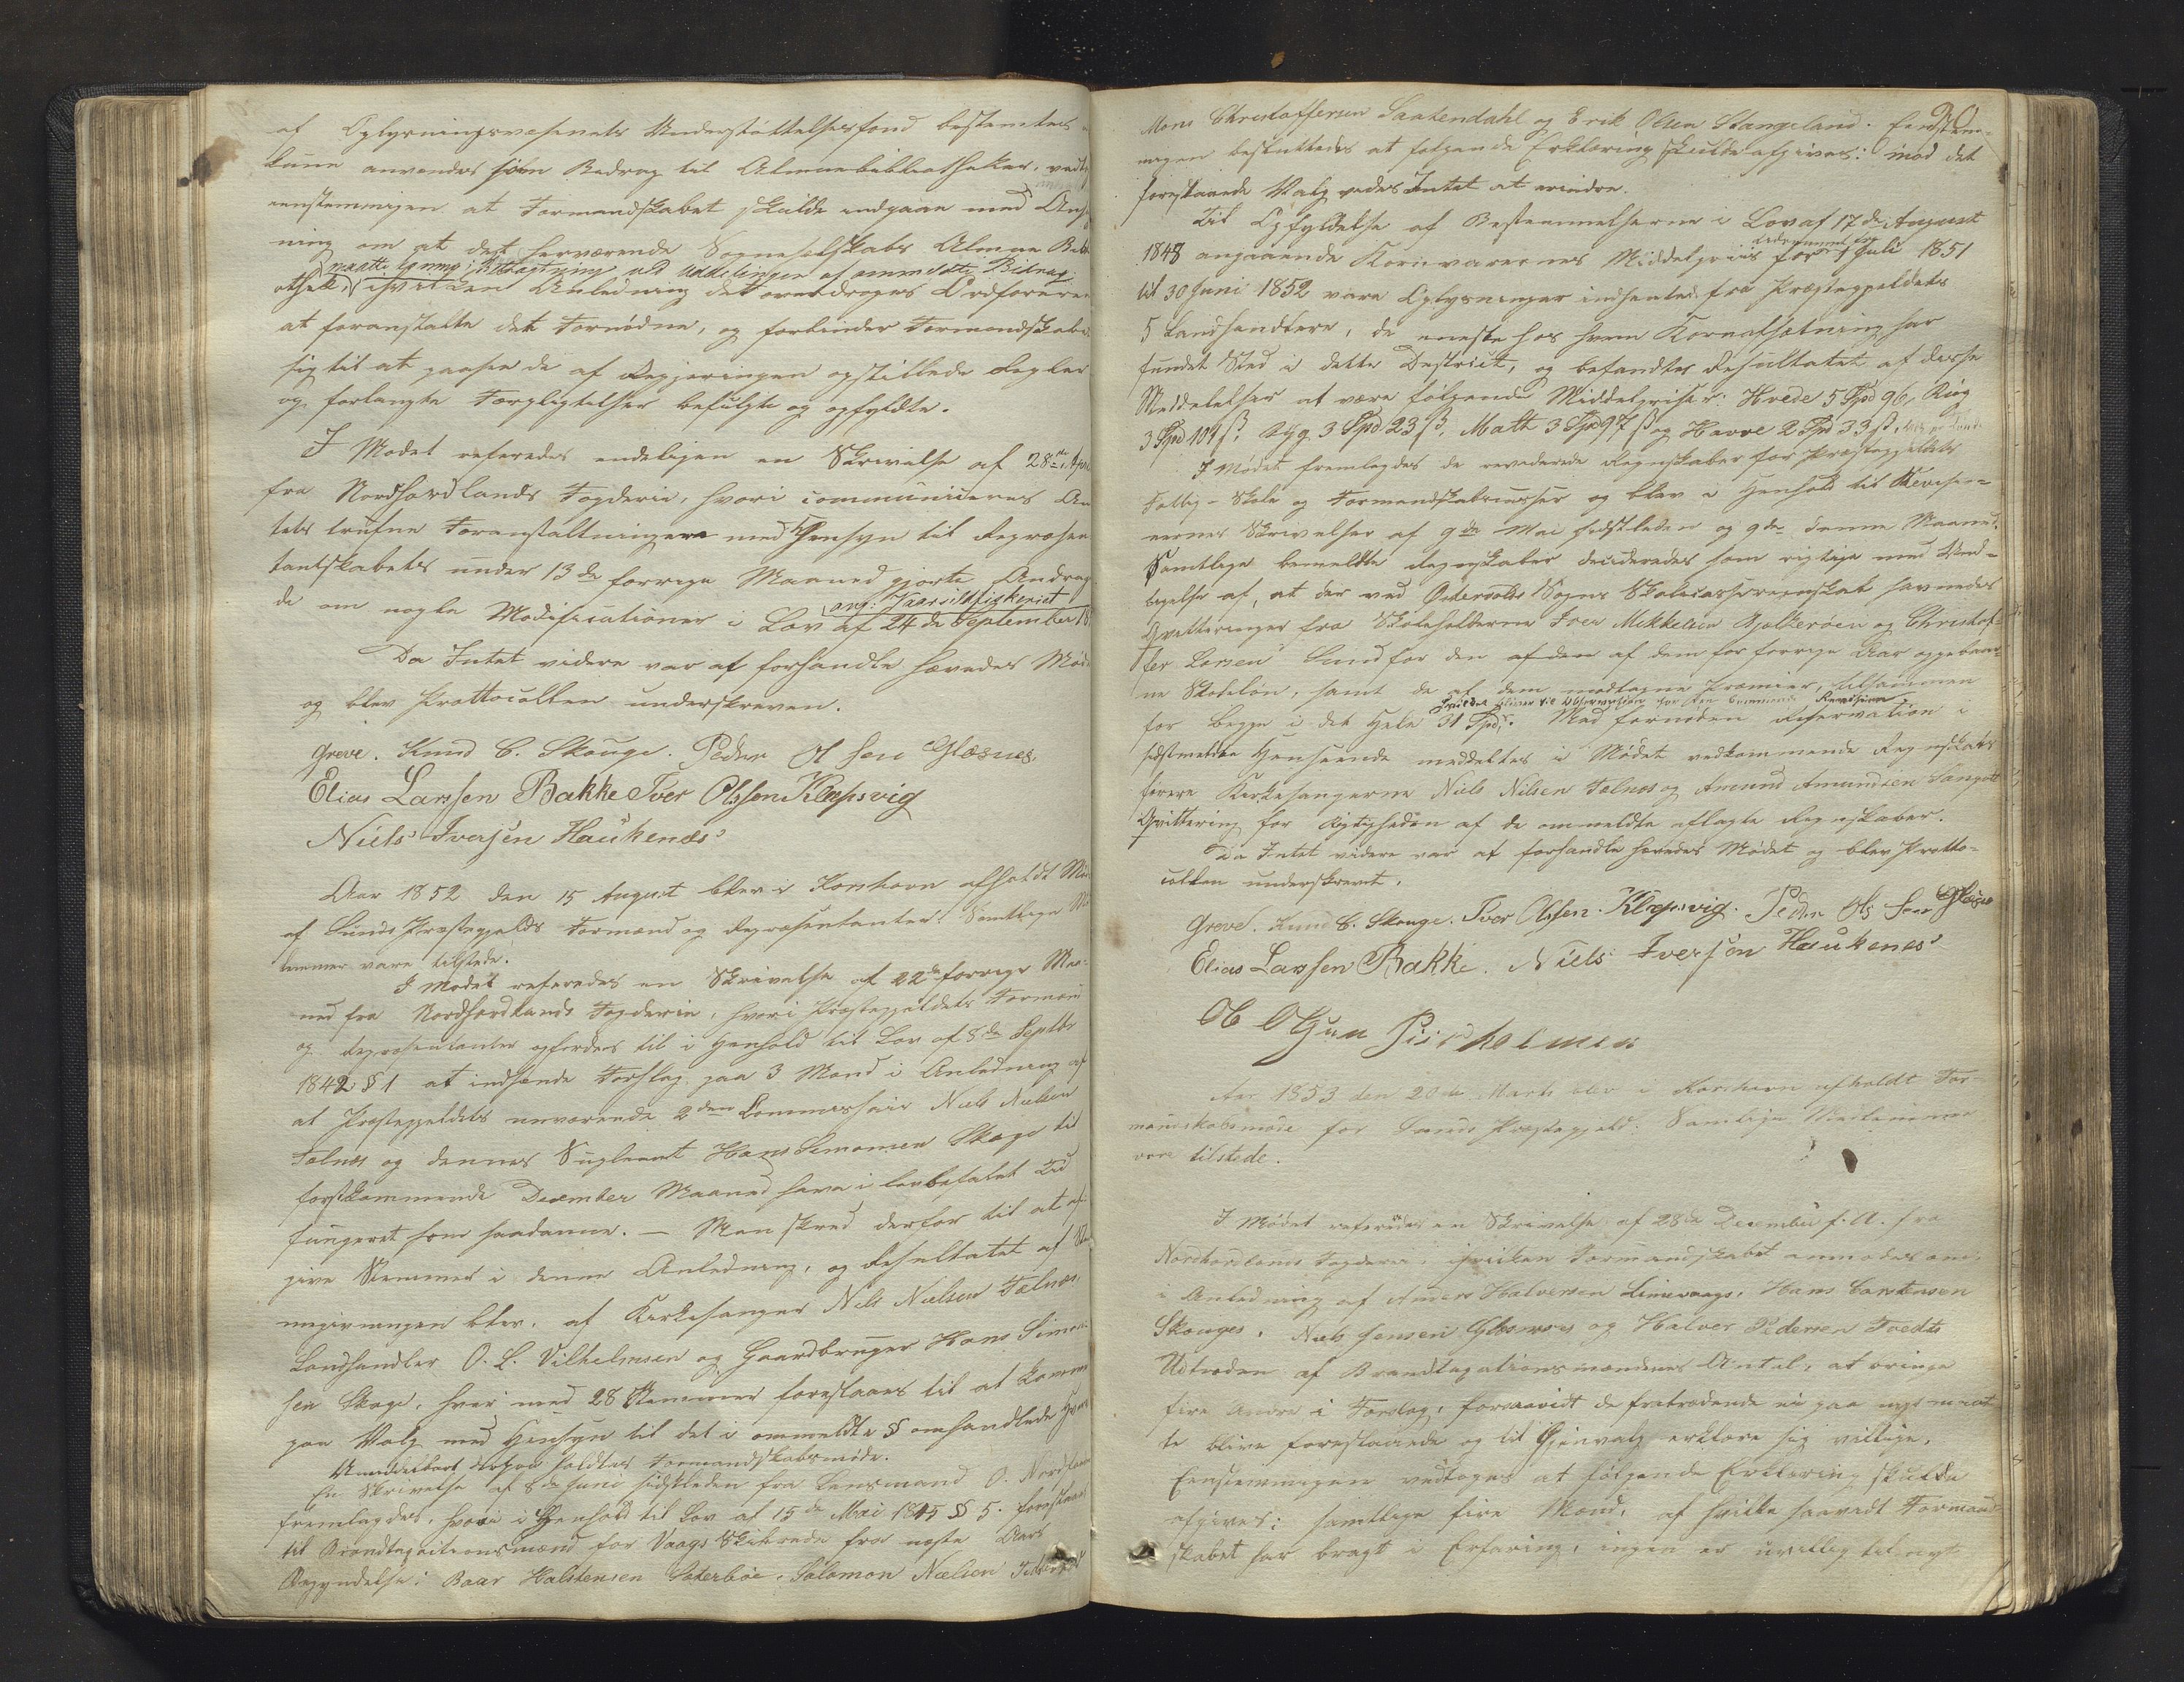 af Oplysningsvæsenets Understøttelsesfond bestemtes
kunne anvendes som Bidrag til Almuebibliotheker, vedtoges
eenstemmigen at Formandskabet skulde indgaae med Ansøg
ning om at det herværende Sogneselskabs Almue Bibli
maatte komme i Betragtning ved Uddelingen af ommeldte Bidrag,
othek, i hvilken Anledning det overdroges Ordføreren
at foranstalte det Fornødne, og forbinder Formandskabet
sig til at paasee de af Regjeringen opstillede Regler
og forlangte Forpligtelser befulgte og opfyldte.
I Mødet refereredes endeligen en Skrivelse af 28de Apri
fra Nordhordlands Fogderie, hvori communiceres Am
tets trufne Foranstaltninger med Hensyn til Repræsen
tantskabets under 13de forrige Maaned gjorte Andragen
de om nogle Modificationer i Lov af 24de September 18
ang: Vaarsildfiskeriet
Da Intet videre var at forhandle hævedes Mødet
og blev Prottocollen underskreven.
Greve. Knud C. Skouge. Peder Olsen Glæsnes
Elias Larssen Bakke Iver Olssen Kleppsvig
Niels Iversen Haukenæs
Aar 1852 den 15 August blev i Korshavn afholdt Mø
af Sunds Præstegjelds Formænd og Repræsentanter. Samtlige M
lemmer vare tilstede.
I Mødet refereredes en Skrivelse af 22de forrige Maa-
ned fra Nordhordlands Fogderie, hvori Præstegjeldets Formænd
og Repræsentanter opfordres til i Henhold til Lov af 8de Septbr
1842 § 1 at indsende Forslag paa 3 Mænd i Anledning af
at Præstegjeldets nuværende 2den Commissair Niels Nielsen
Tælnæs og dennes Supleant Hans Simonsen Skage til
førstkommende December Maaned have i lovbefalet Tid
fungeret som saadanne. — Man skred derfor til at af-
give Stemmer i denne Anledning, og Resultatet af Stem
megivningen blev, at Kirkesanger Niels Nielsen Tælnæs,
Landhandler O. L. Vilhelmsen og Gaardbruger Hans Simon
sen Skage, hver med 28 Stemmer foreslaaes til at komme
paa Valg med Hensyn til det i ommeldte § omhandlede Hverv
Umiddelbart derpaa holdtes Formandskabsmøde.
En Skrivelse af 8de Juni sidstleden fra Lensmand O. Nordland
fremlagdes, hvori i Henhold til Lov af 15de Mai 1845 § 5. foreslaaes
til Brandtaxationsmænd for Vaags Skibrede fra næste Aars
Begyndelse: Baar Halstensen Sæterbøe, Salomon Nielsen
Mons Christoffersen Saatendahl og Erik Olsen Stangeland. Eenstem-
migen besluttedes at følgende Erklæring skulde afgives: mod det
foreslaaede Valg vides Intet at erindre.
Til Opfyldelse af Bestemmelserne i Lov af 17de August
1848 angaaende Kornvarernes Middelpriis for 1 Juli 1851
til 30 Juni 1852 vare Oplysninger indhentede fra Præstegjeldets
5 Landhandlere, de eneste hos hvem Kornafsætning har
fundet Sted i dette District, og befandtes Resultatet af disse
Meddelelser at være følgende Middelpriser: Hvede 5 Spd 96, Rug
3 Spd 104 ß, Byg 3 Spd 23 ß, Malt 3 Spd 97 ß og Havre 2 Spd 33 ß,
I Mødet fremlagdes de reviderede Regnskaber for Præstegjeldets
Fattig- Skole og Formandskabscasser og blev i Henhold til Reviso-
rernes Skrivelser af 9de Mai sidstleden og 9de denne Maaned
Samtlige bemeldte Regnskaber deciderede som rigtige med Und-
tagelse af, at der ved Østervolds Sogns Skolecasseregnskab savnedes
Qvitteringer fra Skoleholderne Iver Mikkelsen Gjelkerøen og Christof-
fer Larsen Sund for den af den af dem for forrige Aar oppebaar-
ne Skoleløn, samt de af dem modtagne Præmier, tilsammen
for begge i det Hele 31 Spd. Med fornøden Reservation i
sidstmeldte Henseende meddeltes i Mødet vedkommende Regnskabs
førere Kirkesangerne Niels Nilsen Tælnæs og Amund Amundsen Sangolt
Qvittering for Rigtigheden af de ommeldte aflagte Regnskaber.
Da Intet videre var at forhandle hævedes Mødet og blev Protto-
collen underskrevet.
Greve. Knud C. Skouge. Iver Olssen Kleppsvig. Peder Olsen Glæsnes
Elias Larssen Bakke. Niels Iversen Haukenæs
Ole Olsen
Aar 1853 den 20de Marts blev i Korshavn afholdt For-
mandskabsmøde for Sunds Præstegjeld. Samtlige Medlemmer
vare tilstede.
I Mødet refereredes en Skrivelse af 28de December f. A. fra
Nordhordlands Fogderie, i hvilken Formandskabet anmodes om,
i Anledning af Anders Halvorsen Limevaags, Hans Carstensen
Skouges, Niels Jensen Glæsnæs og Halvor Pedersen Tvedts
Udtræden af Brandtaxationsmændenes Antal, at bringe
fire Andre i Forslag, forsaavidt de fratrædende ei paa nyt maat
te blive foreslaaede og til Gjenvalg erklære sig villige.
Eenstemmigen vedtoges at følgende Erklæring skulde
afgives: samtlige fire Mænd, af hvilke saavidt Formand
skabet har bragt i Erfaring, ingen er uvillig til nyt